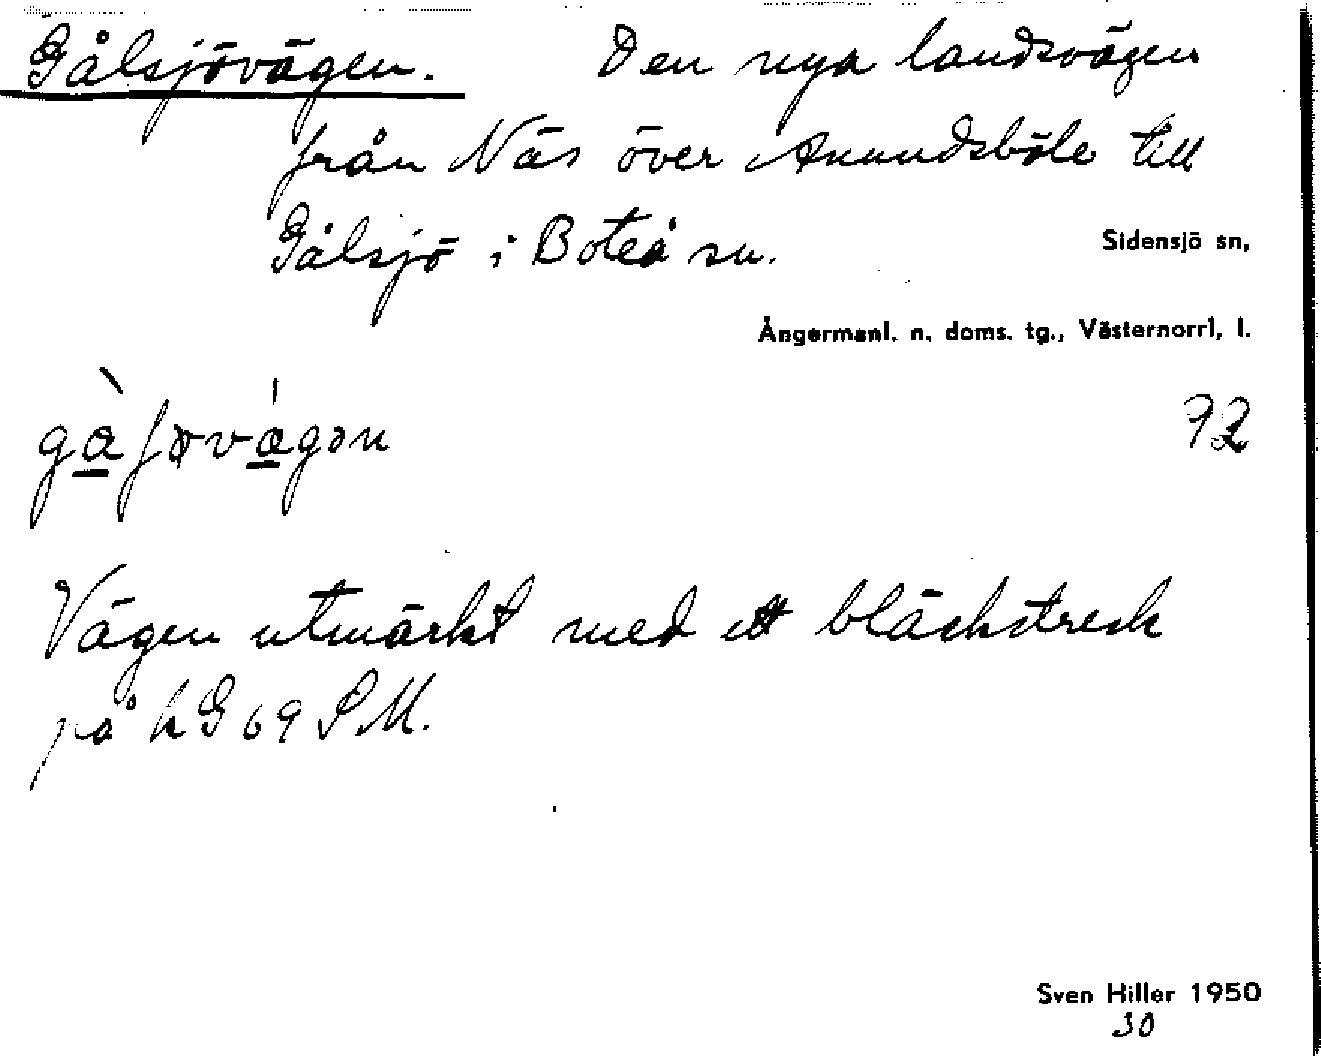 Gålsjövägen. Den nya landsvägen
från Näs över Anundsböle till
Gålsjö i Boteå sn.
Sidensjö sn,
Ångermanl. n. doms. tg., Västernorrl. l.
92
Vägen utmärkt med ett bläckstreck
på h G 69 SM.
Sven Hiller 1950
30